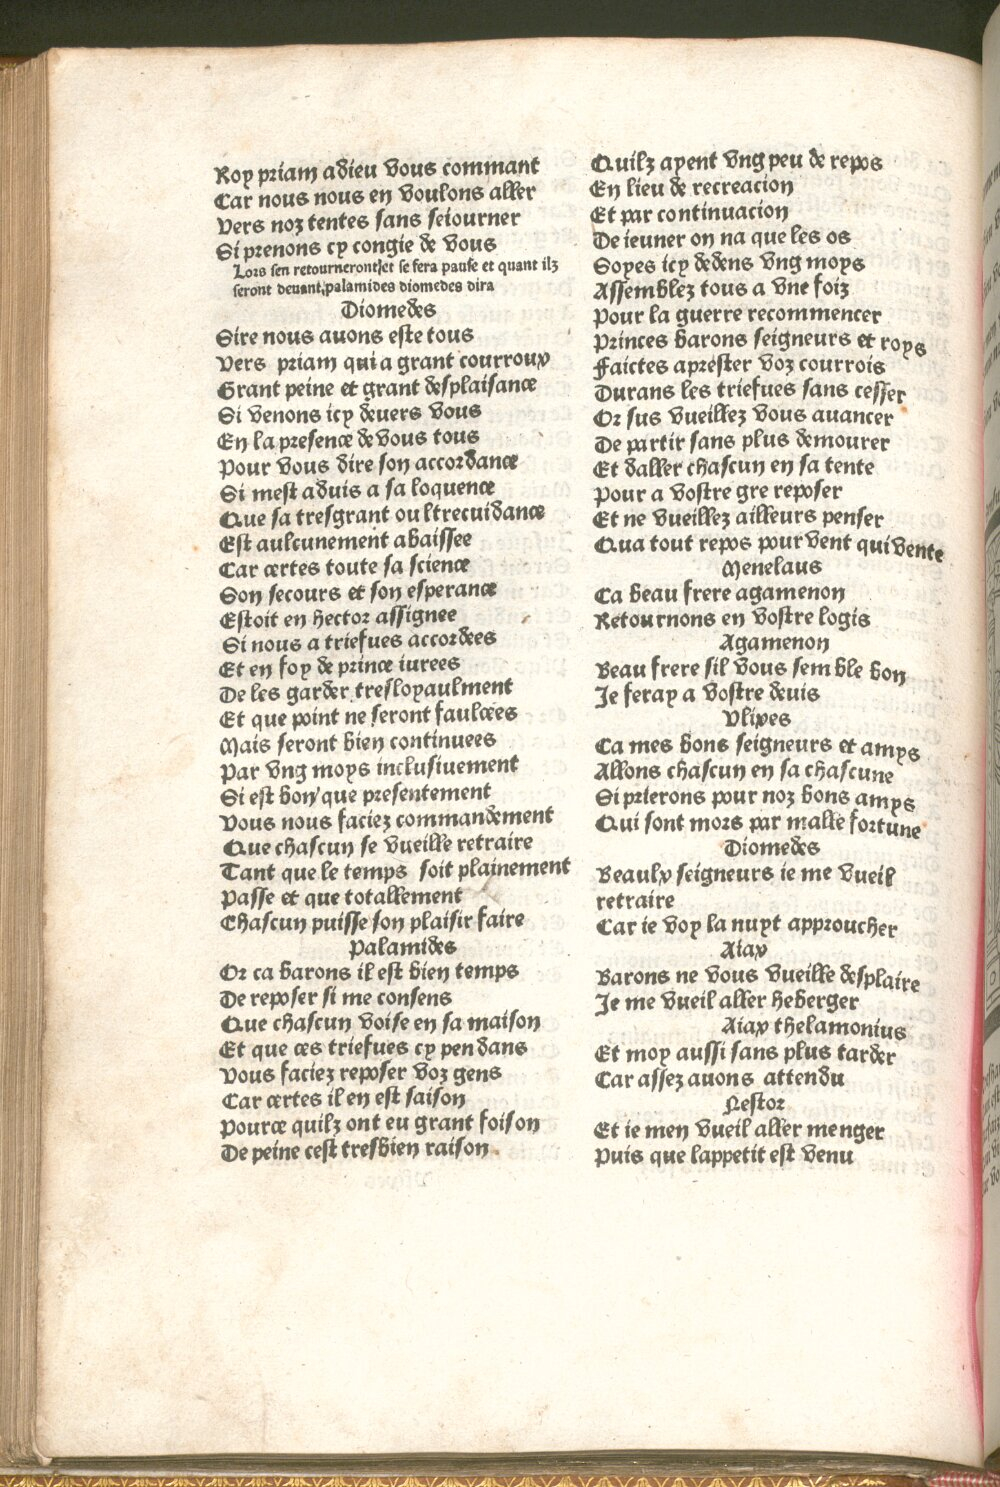 Roy priam adieu vous commant
Car nous nous en voulons aller
Vers noz tentes sans seiourner
Si prenons cy congie de vous
Lors sen retourneront et se fera pause et quant ilz
seront deuant palamides diomedes dira
Diomedes
Sire nous auons este tous
Vers priam qui a grant courroux
Grant peine et grant desplaisance
Si venons icy deuers vous
En la presence de vous tous
Pour vous dire son accordance
Si mest aduis a sa loquence
Que sa tresgrant oultrecuidance
Est aulcunement abaissee
Car certes toute sa science
Son secours et son esperance
Estoit en hector assignee
Si nous a triefues accordees
Et en foy de prince iurees
De les garder tresloyaulment
Et que point ne seront faulcees
Mais seront bien continuees
Par vng moys inclusiuement
Si est bon que presentement
Vous nous faciez commandement
Que chascun se vueille retraire
Tant que le temps soit plainement
Passe et que totallement
Chascun puisse son plaisir faire
Palamides
Or ca barons il est bien temps
De reposer si me consens
Que chascun voise en sa maison
Et que ces triefues cy pendans
Vous faciez reposer voz gens
Car certes il en est saison
Pource quilz ont eu grant foison
De peine cest tresbien raison.
Quilz ayent vng peu de repos
En lieu de recreacion
Et par continuacion
De ieuner on na que les os
Soyes icy dedens vng moys
Assemblez tous a vne foiz
Pour la guerre recommencer
Princes barons seigneurs et roys
Faictes aprester voz courrois
Durans les triefues sans cesser
Or sus vueillez vous auancer
De partir sans plus demourer
Et daller chascun en sa tente
Pour a vostre gre reposer
Et ne vueillez ailleurs penser
Qua tout repos pour vent qui vente
Menelaus
Ca beau frere agamenon
Retournons en vostre logis
Agamenon
Beau frere sil vous semble bon
Je feray a vostre deuis
Vlixes
Ca mes bons seigneurs et amys
Allons chascun en sa chascune
Si prierons pour noz bons amys
Qui sont mors par malle fortune
Diomedes
Beaulx seigneurs ie me vueil
retraire
Car ie voy la nuyt approucher
Aiax
Barons ne vous vueille desplaire
Je me vueil aller heberger
Aiax thelamonius
Et moy aussi sans plus tarder
Car assez auons attendu
Nestor
Et ie men vueil aller menger
Puis que lappetit est venu